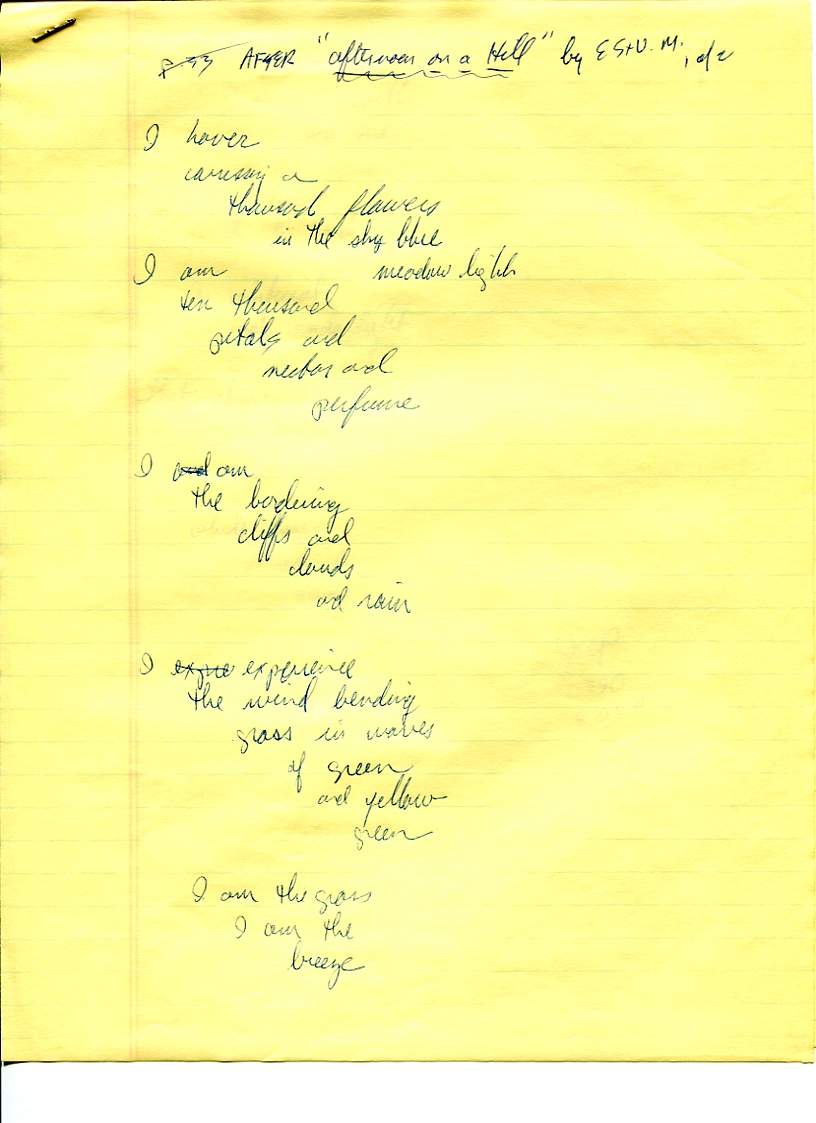 AFTER "afternoon on a Hill" by E St. V. M.
I hover
caressing a
thousand flowers
in the sky blue
meadow light
I am
ten thousand
petals and
nectar and
perfume
I and am
the bordering
cliffs and
clouds
and rain
I experience
the wind bending
grass in waves
of green
and yellow
green
I am the grass
I am the
breeze